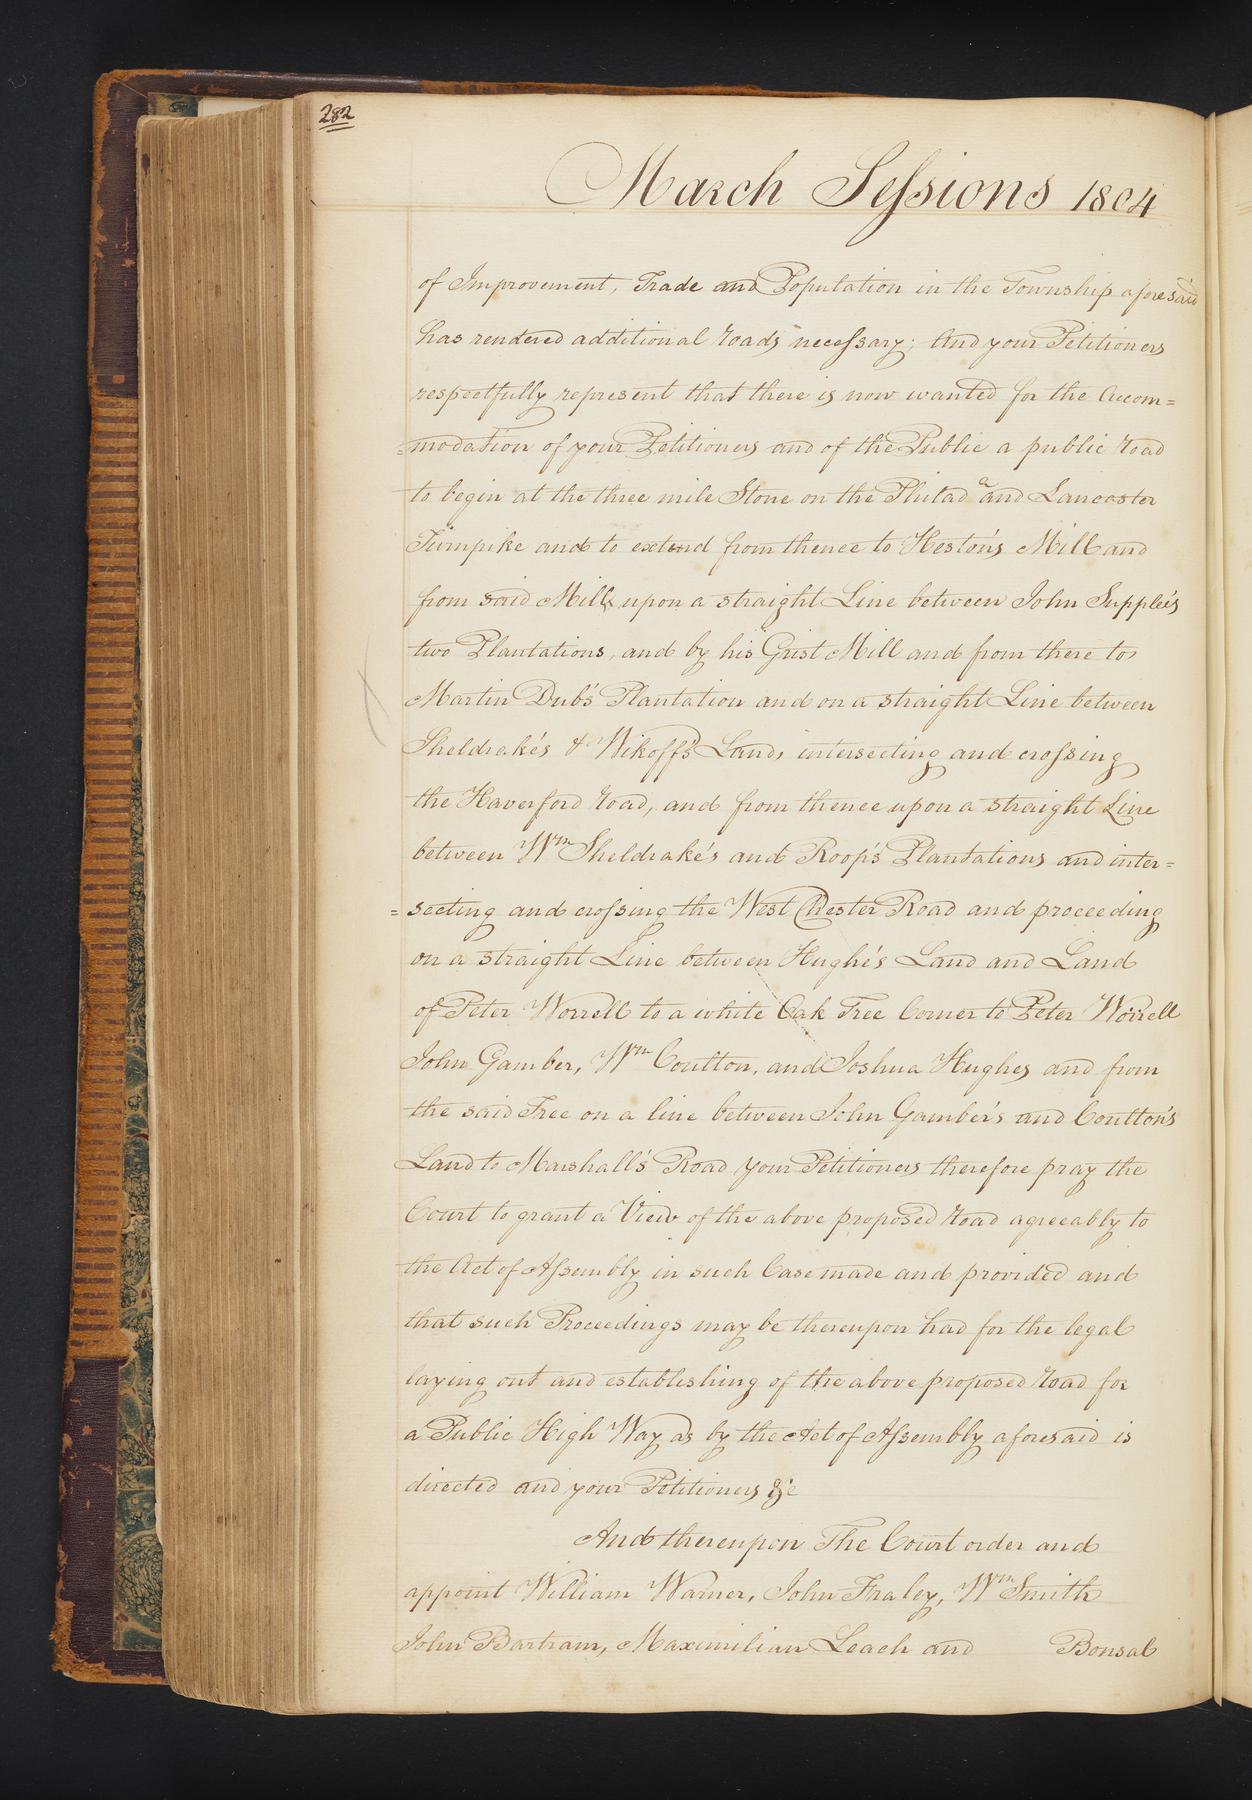 282
March Sessions 1804
of Improvement, Trade and Population in the Township aforesaid
has rendered additional roads necessary; And your Petitioners
respectfully represent that there is now wanted for the Accom=
=modation of your Petitioners and of the Public a public road
to begin at the three mile Stone on the Philad.a and Lancaster
Turnpike and to extend from thence to Heston's Mill and
from said Mills upon a straight Line between John Supplee's
two Plantations, and by his Grist Mill and from there to
Martin Dub's Plantation and on a straight Line between
Sheldrake's & Wikoff's Land, intersecting and crossing
the Haverford road, and from thence upon a straight Line
between Wm Sheldrake's and Roop's Plantations and inter=
=secting and crossing the West Chester Road and proceeding
on a straight Line between Hughe's Land and Land
of Peter Worrell to a white Oak Tree Corner to Peter Worrell
John Gamber, Wm Coultton, and Joshua Hughes and from
the said Tree on a line between John Gamber's and Coultton's
Land to Marshall's Road your Petitioners therefore pray the
Court to grant a View of the above proposed road agreeably to
the Act of Assembly in such Case made and provided and
that such Proceedings may be thereupon had for the legal
laying out and establishing of the above proposed road for
a Public High Way as by the Act of Assembly aforesaid is
directed and your Petitioners &c
And thereupon The Court order and
appoint William Warner, John Fraley, Wm Smith
John Bartram, Maximilian Leach and Bonsal